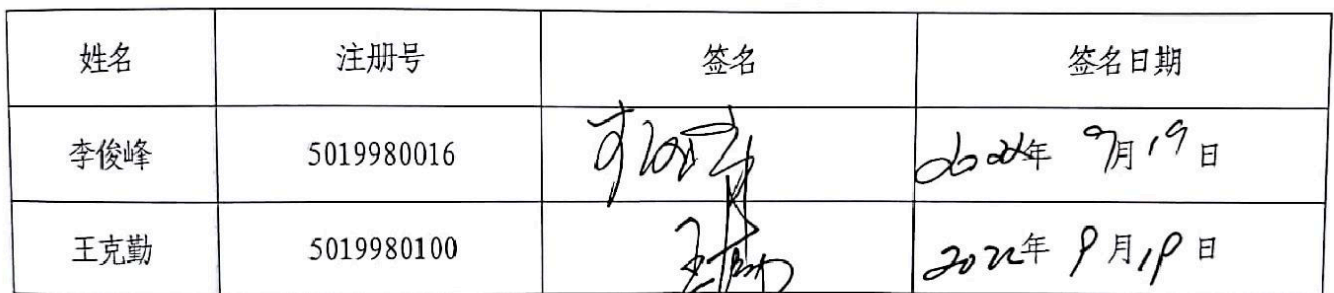 姓名 注册号 签名 签名日期
李俊峰 5019980016 李俊峰 2022年 9月19日
王克勤 5019980100 王克勤 2022年 9月19日